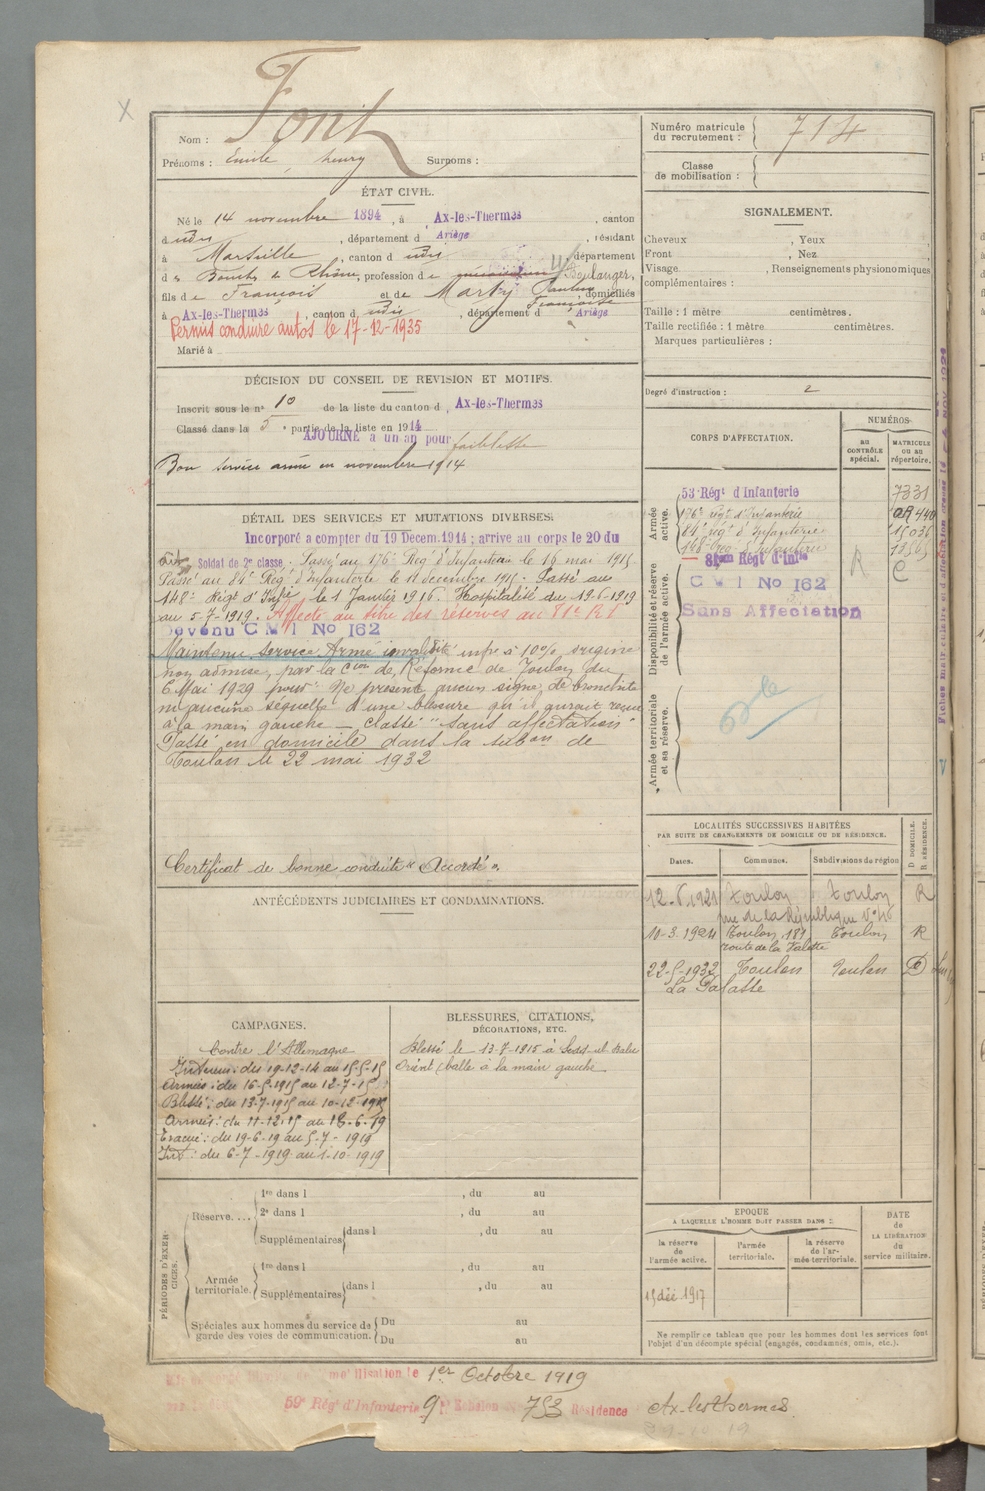 Nom : Font
Prénoms : Emile, henry Surnoms :
Numéro matricule du recrutement : 714
Classe de mobilisation :
ÉTAT CIVIL.
Né le 14 novembre 1894, à Ax-les-Thermes, canton
d udit, département d Ariège, résidant
à Marseille, canton d udit, département
d es Bouches du Rhône, profession de Boulanger,
fils de François et de Marty Pauline Françoise, domiciliés
à Ax-les-Thermes, canton d udit, département d Ariège
Permis conduire autos le 17-12-1935
Marié à
SIGNALEMENT.
Cheveux , Yeux
Front , Nez
Visage , Renseignements physionomiques
complémentaires :
Taille : 1 mètre centimètres.
Taille rectifiée : 1 mètre centimètres.
Marques particulières :
Degré d'instruction : 2
DÉCISION DU CONSEIL DE REVISION ET MOTIFS.
Inscrit sous le n° 10 de la liste du canton d Ax-les-Thermes
Classé dans la 5e partie de la liste en 1914
AJOURNÉ à un an pour faiblesse
Bon service armé en novembre 1914
DÉTAIL DES SERVICES ET MUTATIONS DIVERSES.
Incorporé a compter du 19 Décem. 1914 ; arrive au corps le 20 du
dit, Soldat de 2e classe. Passé au 176e Rég d'Infanterie le 16 mai 1915.
Passé au 84e Rég d'Infanterie le 11 décembre 1915. Passé au
148e Régt d'Infrie le 1 Janvier 1916. Hospitalisé du 19-6-1919
au 5-7-1919. Affecté au titre des réserves au 81e R I
Devenu C M I No 162
Maintenu service Armé invalidité infre à 10%, origine
non admise, par la Cion de Réforme de Toulon du
6 Mai 1929 pour : Ne présente aucun signe de bronchite
ni aucune séquelle d'une blessure qu'il aurait reçue
à la main gauche — Classé "sans affectation"
Passé en domicile dans la subon de
Toulon le 22 mai 1932
Certificat de bonne conduite "Accordé".
CORPS D'AFFECTATION.
NUMÉROS
au CONTRÔLE spécial.
MATRICULE OU AU répertoire.
Armée active.
53e Régt d'Infanterie 7331
176e régt d'Infanterie
84e régt d'Infanterie
148e Rég Infanterie
81eme Régt d'Infie
Disponibilité et réserve de l'armée active.
C M I No 162
Sans Affectation
Armée territoriale et sa réserve.
LOCALITÉS SUCCESSIVES HABITÉES
PAR SUITE DE CHANGEMENTS DE DOMICILE OU DE RÉSIDENCE.
Dates. Communes. Subdivisions de région D DOMICILE. R RÉSIDENCE.
12-6-1921 Toulon Toulon R
rue de la République
10-3-1924 Toulon, 181 Toulon R
route de la Valette
22-5-1932 Toulon Toulon D
ANTÉCÉDENTS JUDICIAIRES ET CONDAMNATIONS.
CAMPAGNES.
Contre l'Allemagne
Intérieur : du 19-12-14 au 15-5-15
Armées : du 16-5-1915 au 12-7-15
Blessé : du 13-7-1915 au 10-12-1915
Armées : du 11-12-15 au 18-6-19
Evacué : du 19-6-19 au 5-7-1919
Int : du 6-7-1919 au 1-10-1919
BLESSURES, CITATIONS, DÉCORATIONS, ETC.
Blessé le 13-7-1915 à Sedd-ul-Bahr
Orient, balle à la main gauche
PÉRIODES D'EXERCICES.
Réserve.... 1re dans l , du au
2e dans l , du au
Supplémentaires dans l , du au
Armée territoriale. 1re dans l , du au
Supplémentaires dans l , du au
Spéciales aux hommes du service de garde des voies de communication. Du au
Du au
EPOQUE
A LAQUELLE L'HOMME DOIT PASSER DANS :
la réserve de l'armée active.
l'armée territoriale.
la réserve de l'armée territoriale.
DATE de LA LIBÉRATION du service militaire.
15 déc. 1917
Ne remplir ce tableau que pour les hommes dont les services font
l'objet d'un décompte spécial (engagés, condamnés, omis, etc.).
1er Octobre 1919
59e Régt d'Infanterie 9e Echelon 753 Résidence Ax-les-Thermes